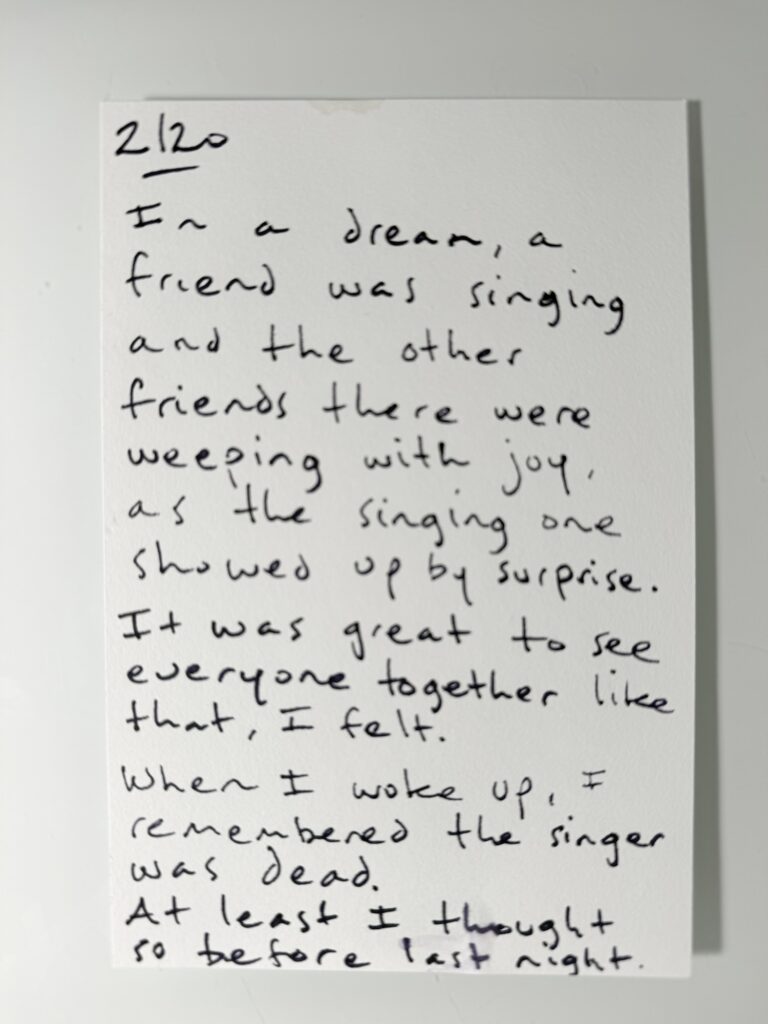 2/20
In a dream, a
friend was singing
and the other
friends there were
weeping with joy,
as the singing one
showed up by surprise.
It was great to see
everyone together like
that, I felt.
When I woke up, I
remembered the singer
was dead.
At least I thought
so before last night.